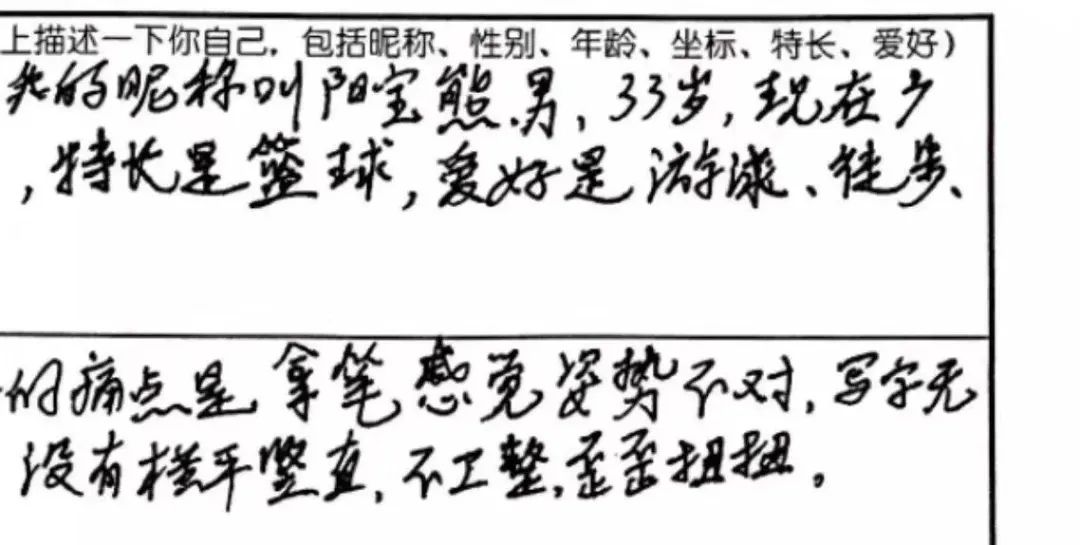 上描述一下你自己，包括昵称、性别、年龄、坐标、特长、爱好）
我的昵称叫阳宝熊.男，33岁，现在广
，特长是篮球，爱好是游泳、徒步、
的痛点是,拿笔感觉姿势不对，写字无
没有横平竖直，不工整，歪歪扭扭。